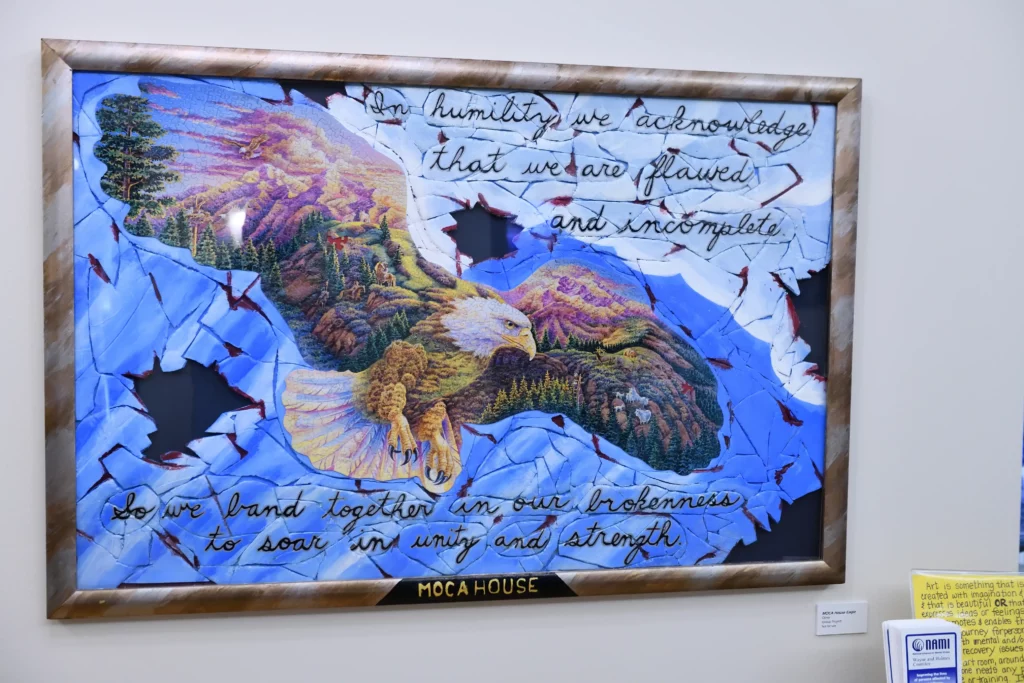 In humility we acknowledge
that we are flawed
and incomplete.
So we band together in our brokenness
to soar in unity and strength.
MOCA HOUSE
MOCA House Eagle
Art is something that is
created with imagination
& that is beautiful OR that
expresses ideas or feelings
notes & enables
journey for person
mental and/o
recovery issues
art room, around
one needs any
or training.
NAMI
Wayne and Holmes
Counties